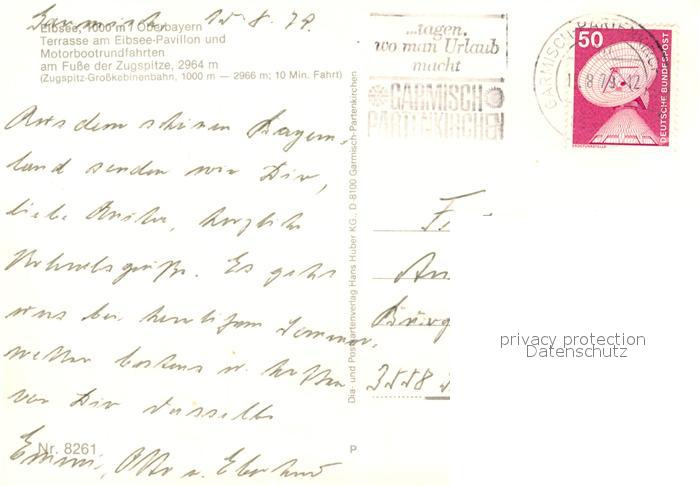 Garmisch, 15.8.79.
Eibsee, 1000 m / Oberbayern
Terrasse am Eibsee-Pavillon und
Motorbootrundfahrten
am Fuße der Zugspitze, 2964 m
(Zugspitz-Großkabinenbahn, 1000 m — 2966 m; 10 Min. Fahrt)
Aus dem schönen Bayern-
land senden wir Dir,
liebe Anita, herzliche
Urlaubsgrüße. Es geht
uns bei herrlichem Sommer-
wetter bestens u. hoffen
von Dir dasselbe
Emmi, Otto u. Eberhard
Nr. 8261
P
Dia- und Postkartenverlag Hans Huber KG., D-8100 Garmisch-Partenkirchen
...tagen,
wo man Urlaub
macht
GARMISCH
PARTENKIRCHEN
GARMISCH-PARTENKIRCHEN
50
DEUTSCHE BUNDESPOST
ERDEFUNKSTELLE
F.
An
Burg
3558
privacy protection
Datenschutz